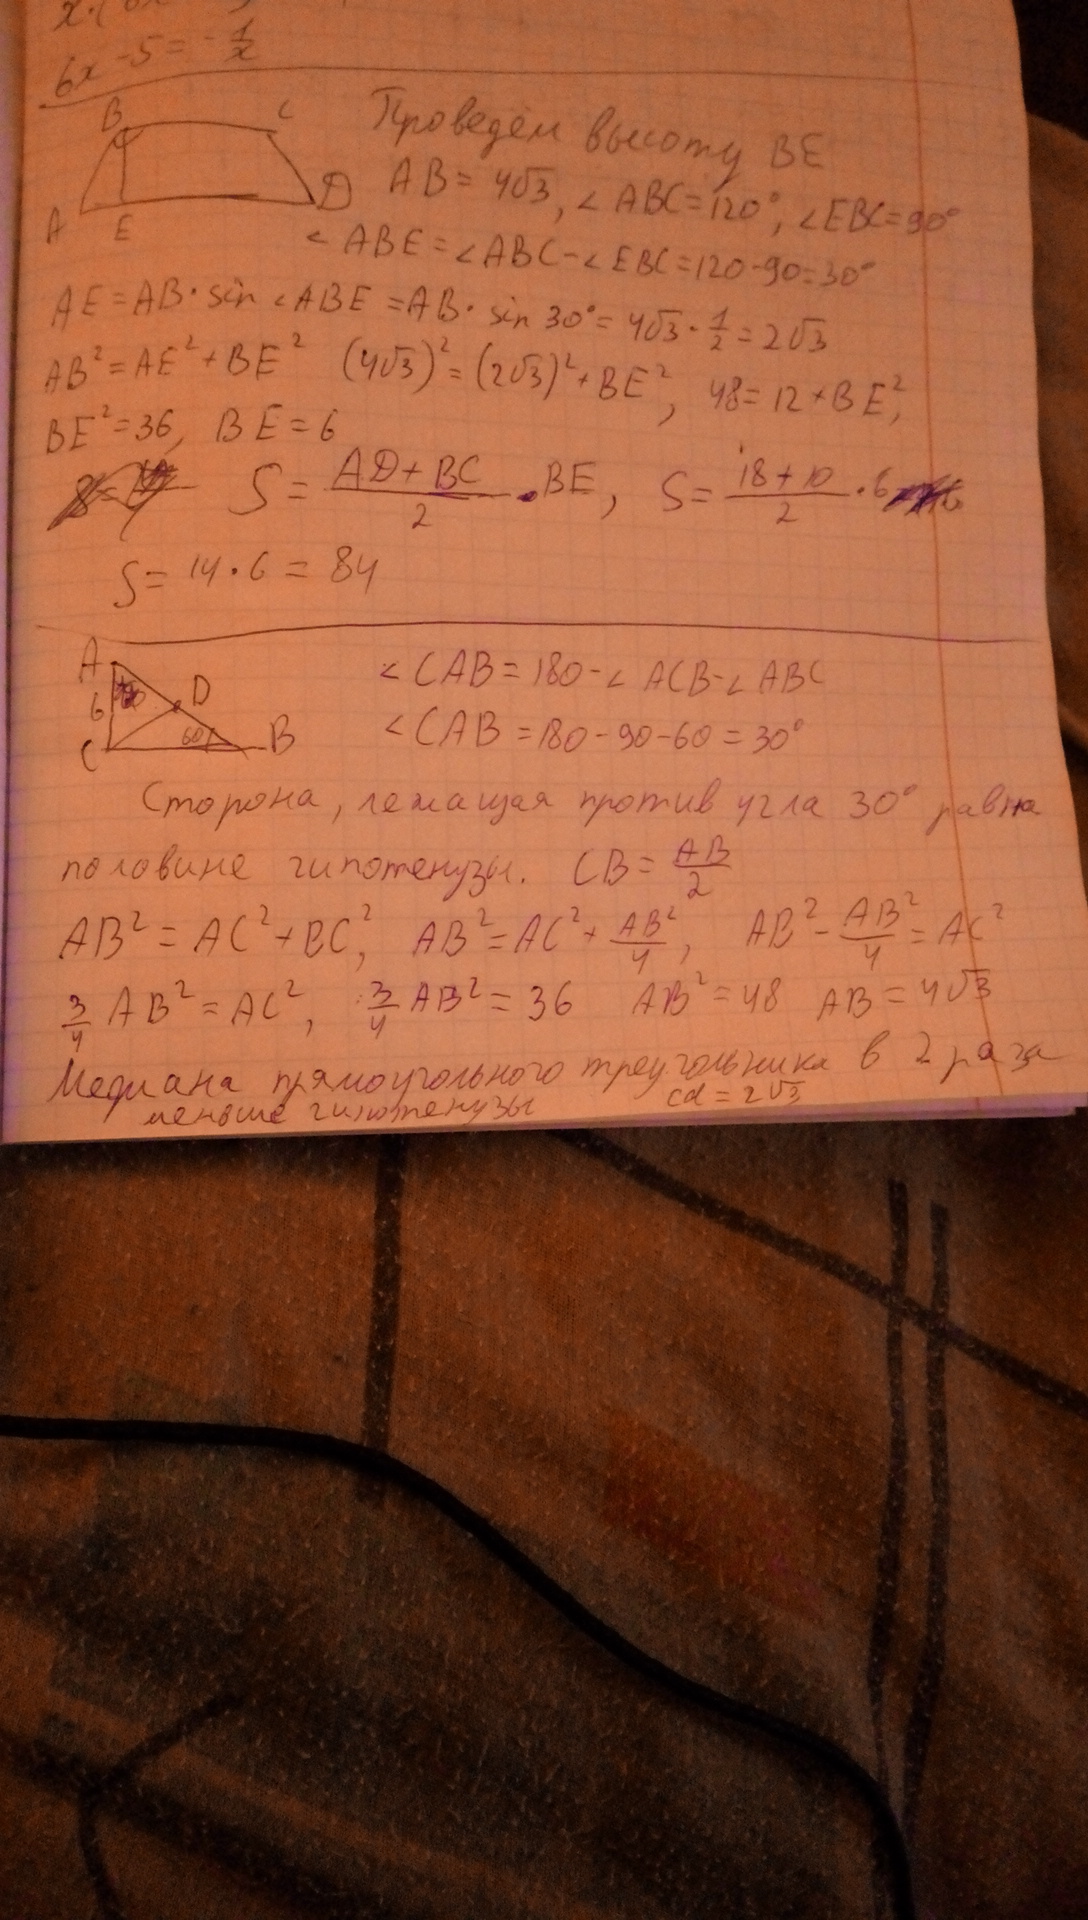 6x - 5 = - 1/x
B C
A E D
Проведём высоту BE
AB = 4√3, ∠ABC = 120°, ∠EBC = 90°
∠ABE = ∠ABC - ∠EBC = 120 - 90 = 30°
AE = AB · sin ∠ABE = AB · sin 30° = 4√3 · 1/2 = 2√3
AB² = AE² + BE² (4√3)² = (2√3)² + BE², 48 = 12 + BE²,
BE² = 36, BE = 6
S = (AD + BC)/2 · BE, S = (18 + 10)/2 · 6
S = 14 · 6 = 84
A
6 D
C 60 B
∠CAB = 180 - ∠ACB - ∠ABC
∠CAB = 180 - 90 - 60 = 30°
Сторона, лежащая против угла 30° равна
половине гипотенузы. CB = AB/2
AB² = AC² + BC², AB² = AC² + AB²/4, AB² - AB²/4 = AC²
3/4 AB² = AC², 3/4 AB² = 36 AB² = 48 AB = 4√3
Медиана прямоугольного треугольника в 2 раза
меньше гипотенузы cd = 2√3